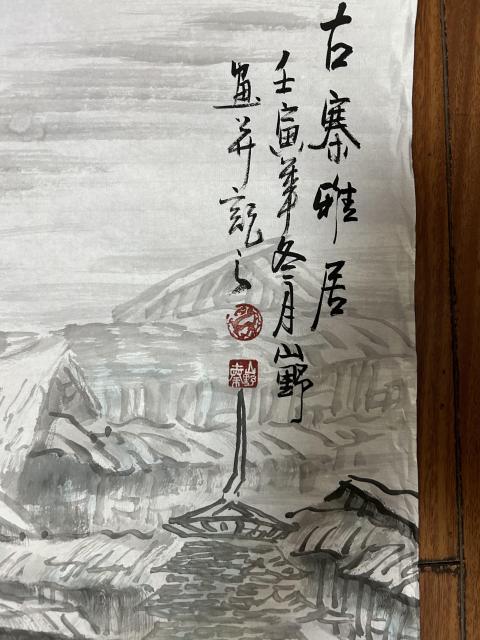 古寨雅居
壬寅年冬月山野
画并记之